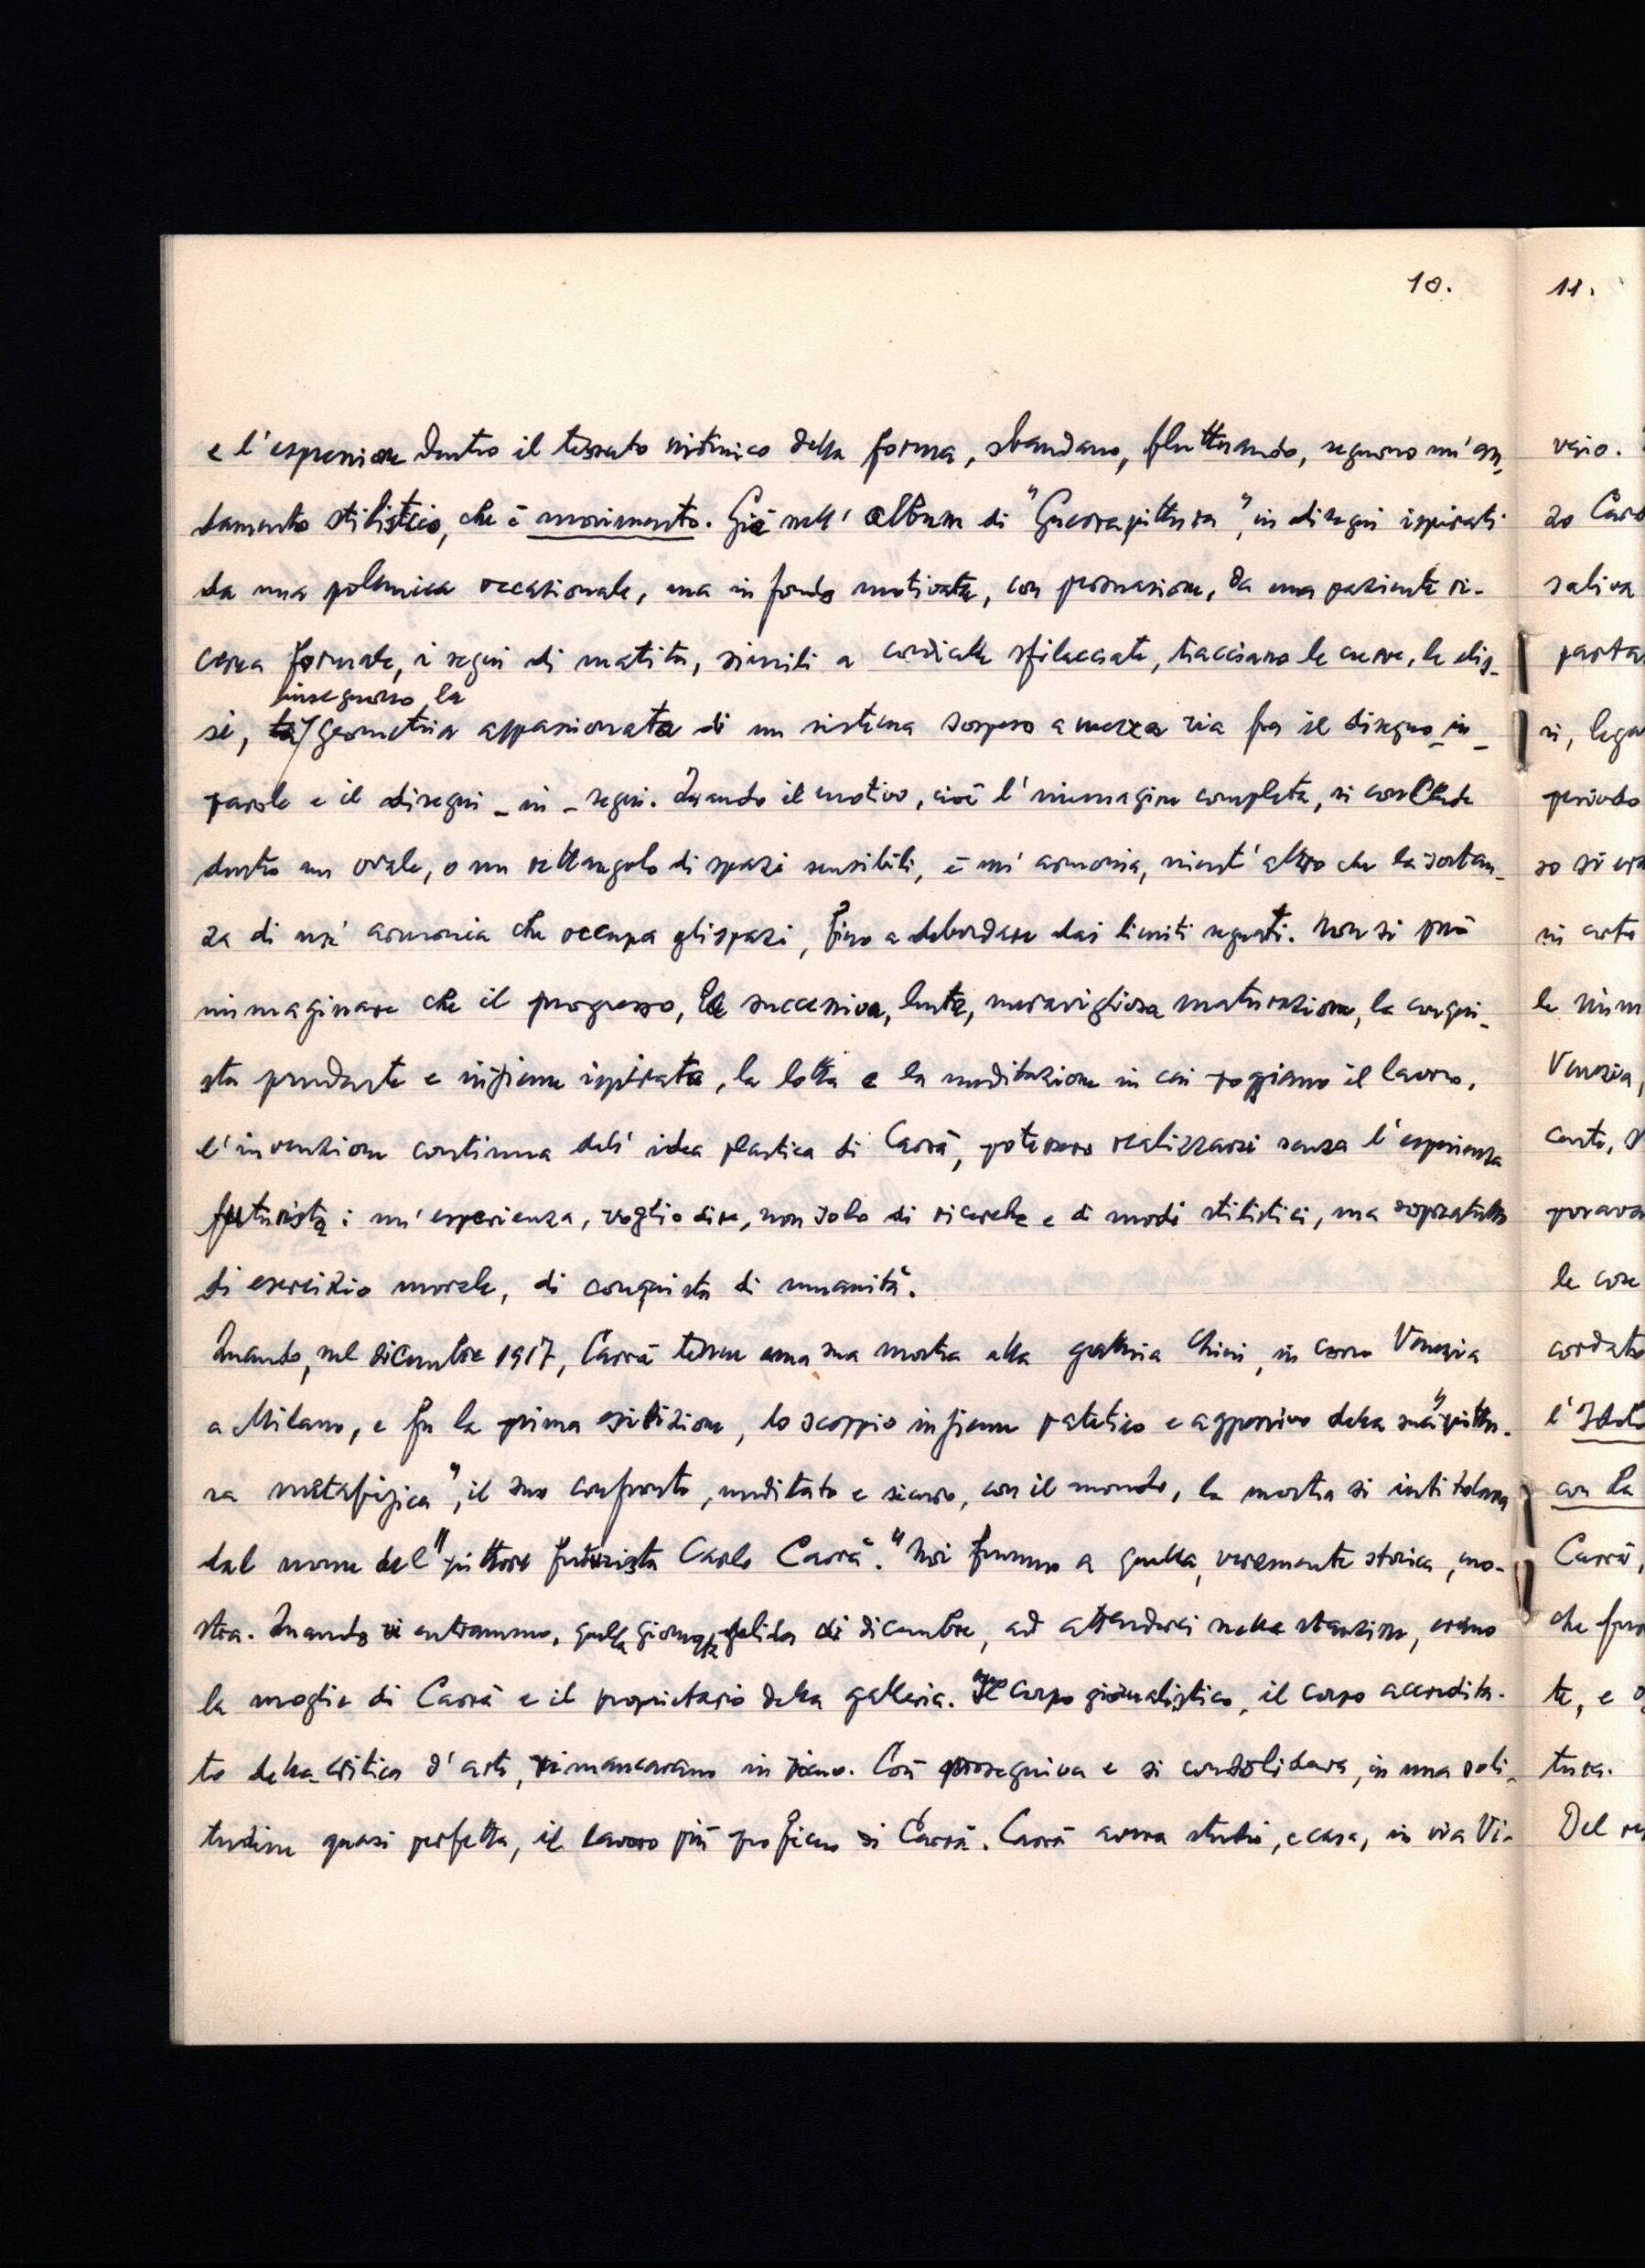 10.
e l'espressione dentro il tessuto ritmico della forma, sbandano, fluttuando, segnano un'an-
damento stilistico, che è movimento. Già nell' album di "Guerrapittura", in disegni ispirati
da una polemica occasionale, ma in fondo motivata, con persuasione, da una paziente ri-
cerca formale, i segni di matita, simili a cordicelle sfilacciate, tracciano le curve, le elis-
inseguono la
si, la geometria appassionata di un sistema sospeso a mezza via fra il disegno-in-
parole e il disegni-in-segni. Quando il motivo, cioè l'immagine completa, si conclude
dentro un ovale, o un rettangolo di spazi sensibili, è un' armonia, nient' altro che la sostan-
za di un' armonia che occupa gli spazi, fino a debordare dai limiti segnati. Non si può
immaginare che il progresso, la successiva, lenta, meravigliosa maturazione, la conqui-
sta prudente e insieme ispirata, la lotta e la meditazione in cui poggiano il lavoro,
l'invenzione continua dell' idea plastica di Carrà, potessero realizzarsi senza l'esperienza
futurista: un'esperienza, voglio dire, non solo di ricerche e di modi stilistici, ma sopratutto
di esercizio morale, di conquista di umanità.
Quando, nel dicembre 1917, Carrà tenne una sua mostra alla galleria Chini, in corso Venezia
a Milano, e fu la prima esibizione, lo scoppio insieme patetico e aggressivo della sua "pittu-
ra metafisica", il suo confronto, meditato e sicuro, con il mondo, la mostra si intitolava
dal nome del "pittore futurista Carlo Carrà." Noi fummo a quella, veramente storica, mo-
stra. Quando vi entrammo, quella giornata gelida di dicembre, ad attenderci nelle stanzine, erano
la moglie di Carrà e il proprietario della galleria. Il corpo giornalistico, il corpo accredita-
to della critica d'arte, vi mancavano in pieno. Così proseguiva e si consolidava, in una soli-
tudine quasi perfetta, il lavoro più proficuo di Carrà. Carrà aveva studio, e casa, in via Vi-
11.
vaio.
zo Carr
saliva
si, lega
periodo
so si
in
Venezia,
le cose
cordato
con la
Carrà,
te, e
tura.
Del